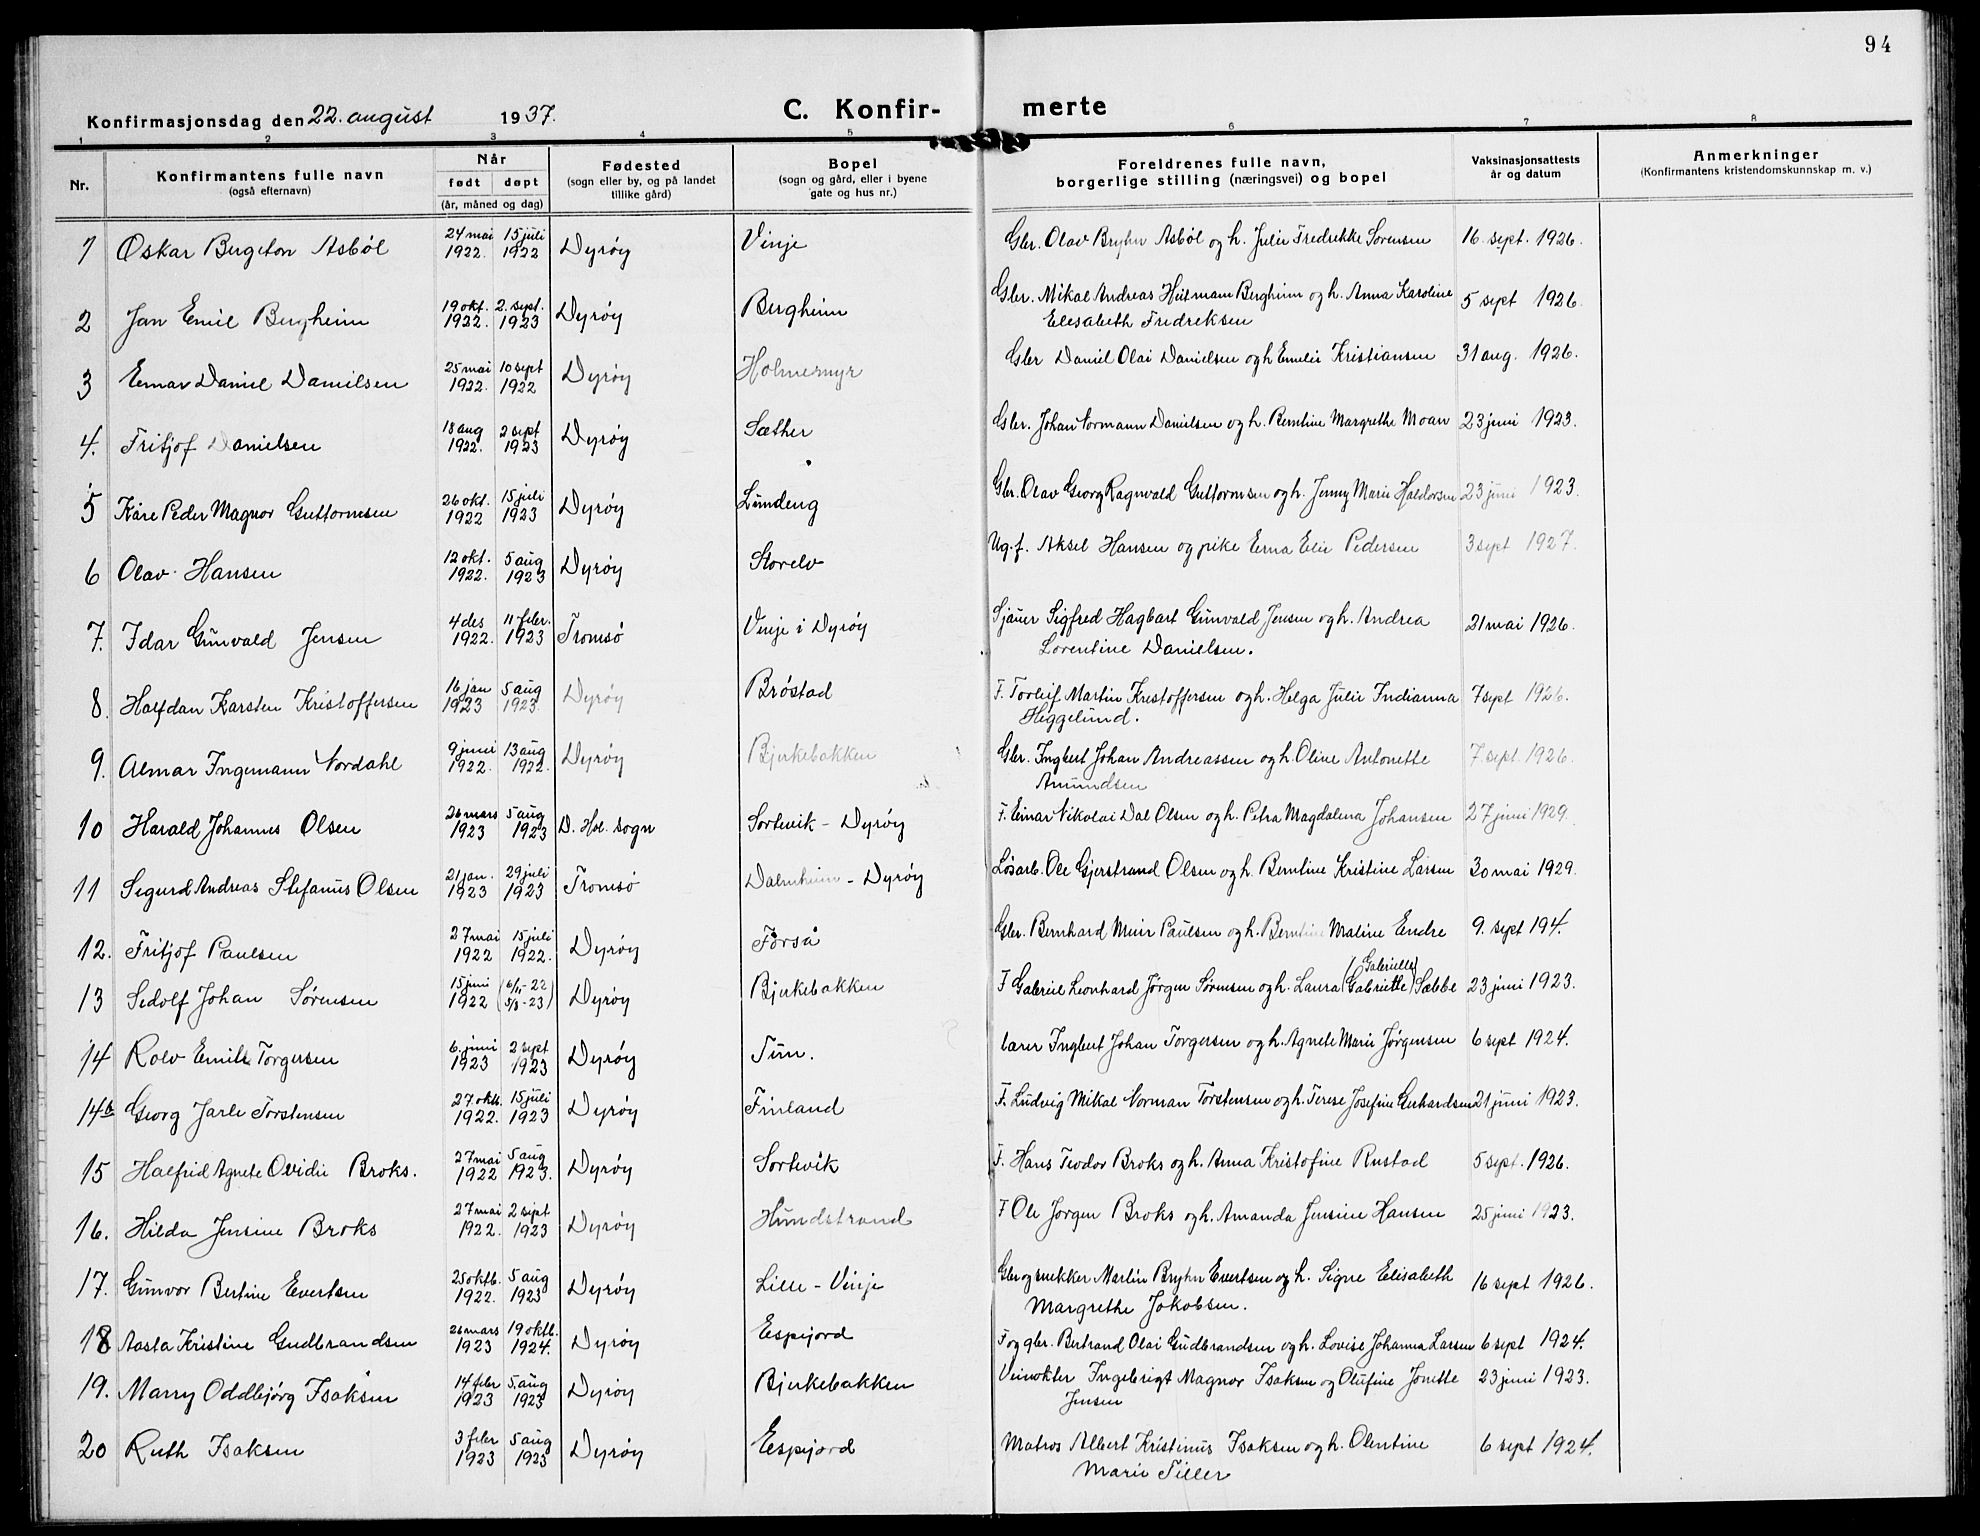 94
Konfirmasjonsdag den 22. august 1937.
C. Konfir- merte
1 2 3 4 5 6 7 8
Nr.
Konfirmantens fulle navn
(også efternavn)
Når
født døpt
(år, måned og dag)
Fødested
(sogn eller by, og på landet
tillike gård)
Bopel
(sogn og gård, eller i byene
gate og hus nr.)
Foreldrenes fulle navn,
borgerlige stilling (næringsvei) og bopel
Vaksinasjonsattests
år og datum
Anmerkninger
(Konfirmantens kristendomskunnskap m. v.)
1 Oskar Bergiton Asbøl 24 mai 1922. 15 juli 1922 Dyrøy Vinje Gbr. Olav Bryhn Asbøl og h. Julie Fredrikke Sørensen 16. sept. 1926.
2 Jan Emil Bergheim 19 okt. 1922. 2. sept. 1923 Dyrøy Bergheim Gbr. Mikal Andreas Heitmann Bergheim og h. Anna Karoline
Elisabeth Fredreksen 5 sept 1926.
3 Einar Daniel Danielsen 25 mai 1922. 10 sept 1922 Dyrøy Holmemyr Gbr Daniel Olai Danielsen og h Emelie Kristiansen 31 aug. 1926.
4. Fritjof Danielsen 18 aug 1922. 2 sept 1923 Dyrøy Sæther Gbr. Johan Normann Danielsen og h. Berntine Margrethe Moan 23 juni 1923.
5 Kåre Peder Magnor Guttormsen 26 okt. 1922 15 juli 1923 Dyrøy Lundeng Gbr. Olav Georg Ragnvald Guttormsen og h. Jenny Marie Haldorsen 23 juni 1923.
6 Olav Hansen 12 okt. 1922. 5 aug 1923 Dyrøy Storelv Ug. f. Aksel Hansen og pike Erna Elie Pedersen 3 sept 1927.
7. Idar Gunvald Jensen 4 des 1922. 11 febr. 1923 Tromsø Vinje i Dyrøy Sjauer Sigfred Hagbart Gunvald Jensen og h. Andrea
Lorentine Danielsen. 21 mai 1926.
8. Halfdan Karsten Kristoffersen 16 jan 1923 5 aug 1923. Dyrøy Brøstad F. Torleif Martin Kristoffersen og h. Helga Julie Indianna
Heggelund. 7 sept 1926.
9. Almar Ingemann Nordahl 9 juni 1922. 13 aug 1922. Dyrøy Bjerkebakken Gbr. Ingbert Johan Andreassen og h. Oline Antonette
Amundsen 7. sept. 1926.
10 Harald Johannes Olsen 26 mars 1923 5 aug 1923 D. Hol. sogn Sortevik - Dyrøy F. Einar Nikolai Dal Olsen og h. Petra Magdalena Johansen 27 juni 1929.
11 Segurd Andreas Stefanus Olsen 21 jan. 1923 29 juli 1923 Tromsø Dalmheim - Dyrøy Løsarb. Ole Gjerstrand Olsen og h. Berntine Kristine Larsen 30 mai 1929.
12. Fritjof Paulsen 27 mai 1922 15 juli 1922. Dyrøy Forså Gbr. Bernhard Meier Paulsen og h. Berntine Maline Endre 9. sept 194.
13 Sedolf Johan Sørensen 15 juni 1922 (6/11-22 5/8-23) Dyrøy Bjerkebakken F Gabriel Leonhard Jørgen Sørensen og h. Laura (Gabrielle) (Gabriette) Sæbbe 23 juni 1923.
14 Rolv Emil Torgersen 6. juni 1923 2 sept 1923 Dyrøy Tun. lærer Ingbert Johan Torgersen og h. Agnete Marie Jørgensen 6 sept 1924.
14b Georg Jarle Torstensen 27. oktb. 1922. 15 juli 1923 Dyrøy Finland F. Ludvig Mikal Norman Torstensen og h. Terese Josefine Gerhardsen 21 juni 1923.
15 Halfrid Agnete Ovidie Broks. 27 mai 1922 5 aug 1923. Dyrøy Sortevik F. Hans Teodor Broks og h. Anna Kristofine Rustad 5 sept. 1926.
16. Hilda Jensine Broks 27 mai 1922. 2 sept 1923 Dyrøy Hundstrand F Ole Jørgen Broks og h. Amanda Jensine Hansen 25 juni 1923.
17. Gunvor Bertine Evertsen 25 oktb. 1922. 5 aug 1923 Dyrøy Lille - Vinje Gbr og snekker Martin Bryhn Evertsen og h. Signe Elisabeth
Margrethe Jakobsen. 16 sept 1926.
18 Aasta Kristine Gudbrandsen 26 mars 1923 19 oktb. 1924. Dyrøy Espejord F og gbr. Bertrand Olai Gudbrandsen og h. Lovise Johanna Larsen 6 sept 1924.
19. Marry Oddbjørg Isaksen 14 febr 1923 5. aug 1923 Dyrøy Bjerkebakken Veivokter Ingebrigt Magnor Isaksen og Olufine Jonette
Jensen 23 juni 1923.
20 Ruth Isaksen 3 febr 1923 5 aug 1923 Dyrøy Espejord Matros Albert Kristinus Isaksen og h. Olentine
Marie Tiller 6 sept 1924.